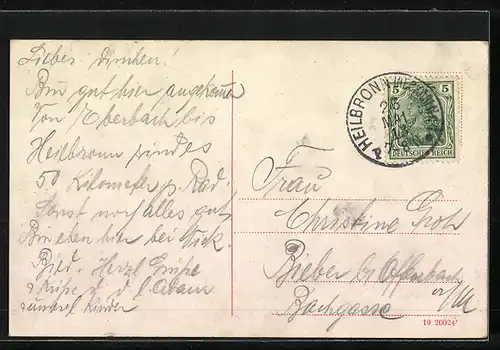 Liebes
Bin gut hier angekommen
Von Eberbach bis
Heilbronn sind es
50 Kilometer p. Rad.
Sonst noch alles gut
Bin eben hier bei
Herzl. Grüße
Kinder
HEILBRONN
23
MAI
5 5
DEUTSCHES REICH
Frau
Christine Groh
Bieber bei Offenbach
a/M
Bachgasse
19 20024